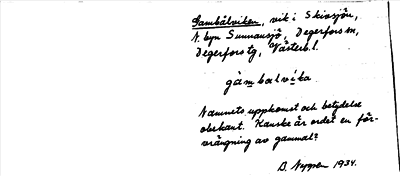 Gambälviken, vik i Skivsjön,
N. byn Sunnansjö, Degerfors sn,
Degerfors tg, Västerb. l.
gàmbalvika
Namnets uppkomst och betydelse
obekant. Kanske är ordet en för-
vrängning av gammal?
D. Nygren 1934.